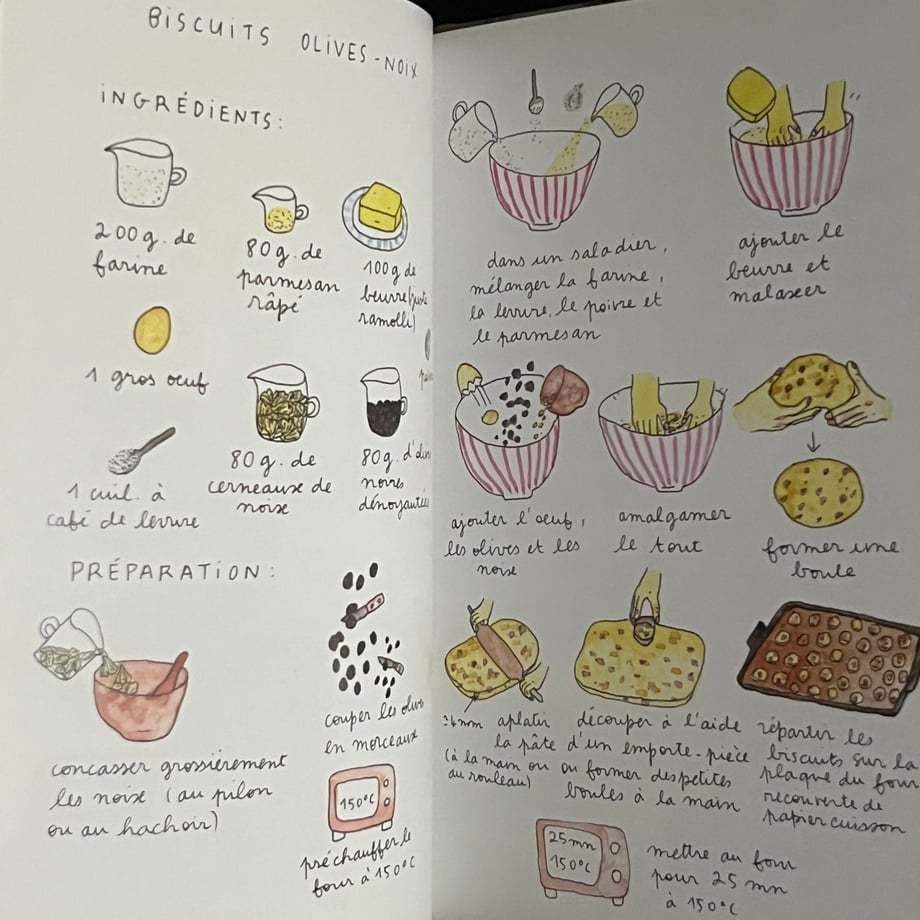 BISCUITS OLIVES-NOIX
INGRÉDIENTS:
200g. de
farine
80g. de
parmesan
râpé
100g de
beurre (juste
ramolli)
1 gros oeuf
80g. de
cerneaux de
noix
80g. d'
noires
dénoyautées
1 cuil. à
café de levure
PRÉPARATION:
concasser grossièrement
les noix (au pilon
ou au hachoir)
couper les olives
en morceaux
150°C
préchauffer le
four à 150°C
dans un saladier,
mélanger la farine,
la levure, le poivre et
le parmesan
ajouter le
beurre et
malaxer
ajouter l'oeuf,
les olives et les
noix
amalgamer
le tout
former une
boule
4mm aplatir
la pâte
(à la main ou
au rouleau)
découper à l'aide
d'un emporte-pièce
ou former des petites
boules à la main
répartir les
biscuits sur la
plaque du four
recouverte de
papier cuisson
25mn
150°C
mettre au four
pour 25 mn
à 150°C